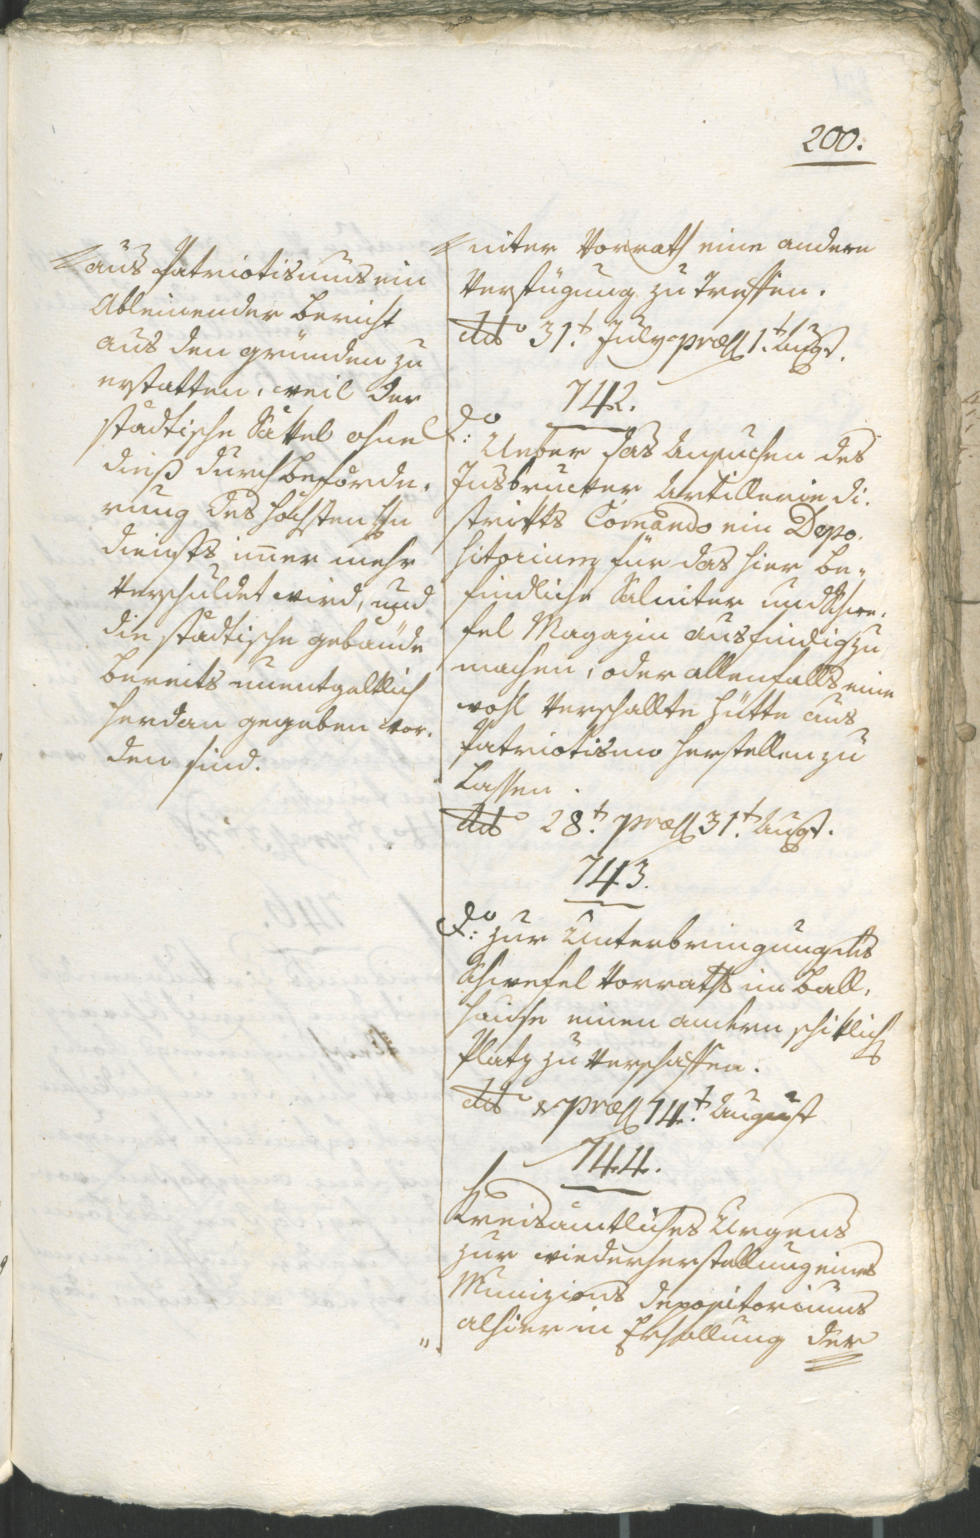 200.
aus Patriotismus ein
Ableinender Bericht
aus den gründen zu
erstatten, weil der
städtische Säkel ohne
dieß durch beförde„
rung des höchsten
diensts im̅er mehr
verschuldet wird, und
die städtische gebäude
bereits unentgältlich
herdan gegeben wor„
den sind.
niter Vorrath eine andere
Verfügung zu treffen.
ddto 31.t July præs 1.t Augt.
742.
do: Ueber das Ansuchen des
Insbrucker Artillerie di„
strikts Com̅ando ein Depo„
sitorium für das hier be„
findliche Saliniter und Schwe„
fel Magazin ausfindig zu
machen, oder allenfalls eine
wohl verschallte Hütte aus
Patriotismo herstellen zu
lassen.
ddto 28.t præs 31.t Augt.
743.
do: zur Unterbringung des
Schwefel Vorraths im Ball„
hause einen andern schiklich
Platz zu verschaffen.
ddto & præs 14.t August
744.
Kreisämtliches Urgens
zur wiederherstellung eines
Munizions depositoriums
alhier in Erhollung der